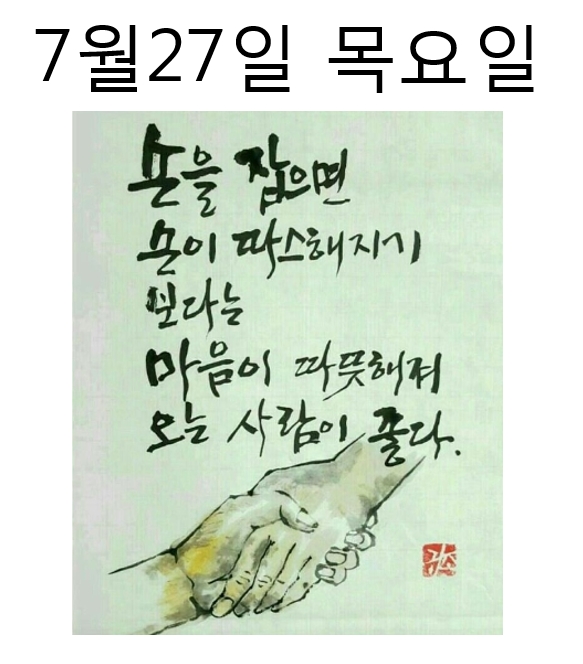 7월27일 목요일
손을 잡으면
손이 따스해지기
보다는
마음이 따뜻해져
오는 사람이 좋다.